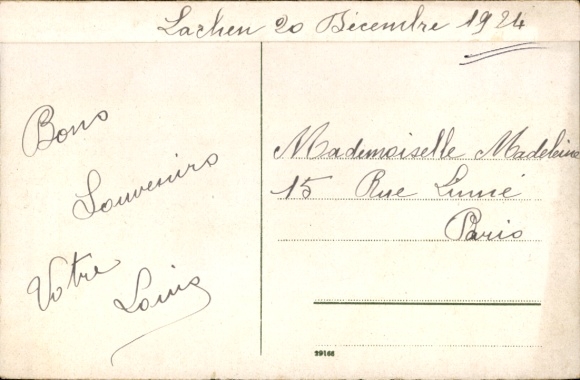 Lachen 20 Décembre 1924
Bons
Souvenirs
Votre
Louis
Mademoiselle Madeleine
15 Rue Linné
Paris
29166